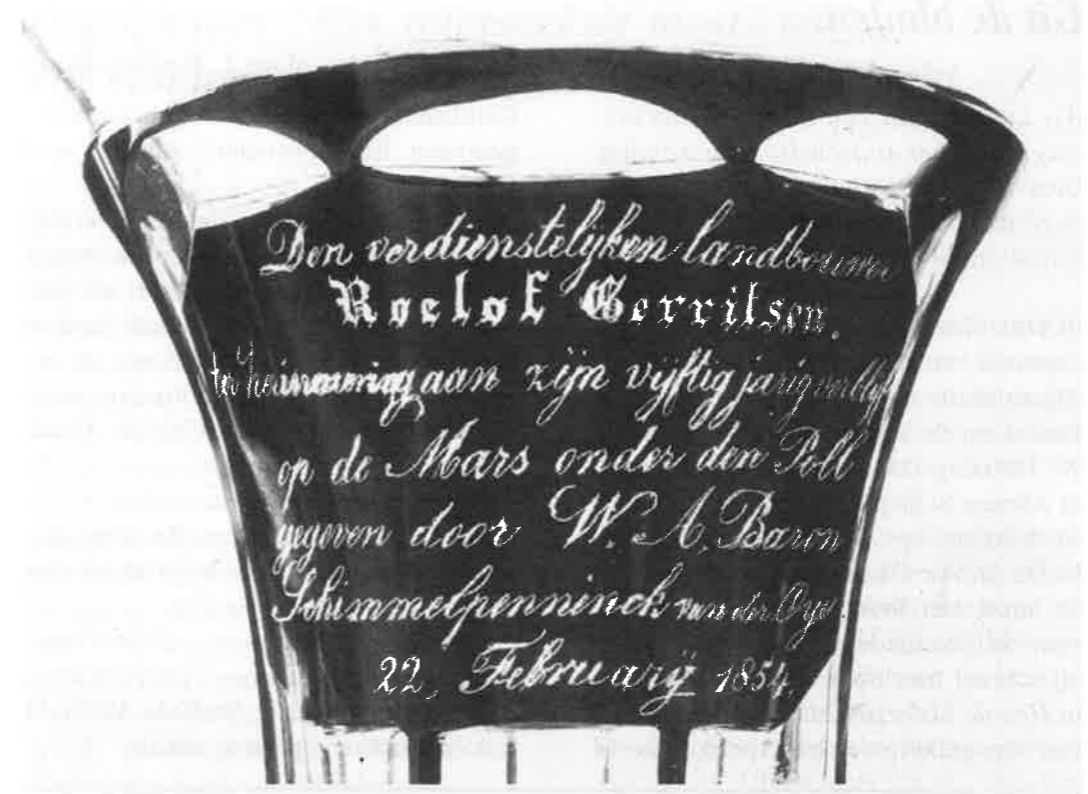 Den verdienstelijken landbouwer
Roelof Gerritsen.
ter herinnering aan zijn vijftig jarig verblijf
op de Mars onder den Poll
gegeven door W. A. Baron
Schimmelpenninck van der Oye
22, Februarÿ 1854,